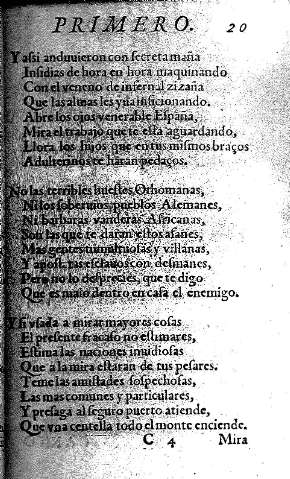 PRIMERO. 20
Y assi anduuieron con secreta maña
Insidias de hora en hora maquinando
Con el veneno de infernal zizaña
Que las almas les yua inficionando.
Abre los ojos venerable España,
Mira el trabajo que te està aguardando,
Llora los hijos que en tus mismos braços
Adulterinos te haran pedaços.
No las terribles huestes Othomanas,
Ni los soberuios pueblos Alemanes,
Ni barbaras vanderas Africanas,
Son las que te daran estos afanes,
Mas gentes tumultuosas y villanas,
Y apostatas esclauos con desmanes,
Pero no lo desprecies, que te digo
Que es malo dentro en casa el enemigo.
Y si vsada a mirar mayores cosas
El presente fracaso no estimares,
Estima las naciones inuidiosas
Que a la mira estaran de tus pesares.
Teme las amistades sospechosas,
Las mas comunes y particulares,
Y presaga al seguro puerto atiende,
Que vna centella todo el monte enciende.
C 4 Mira